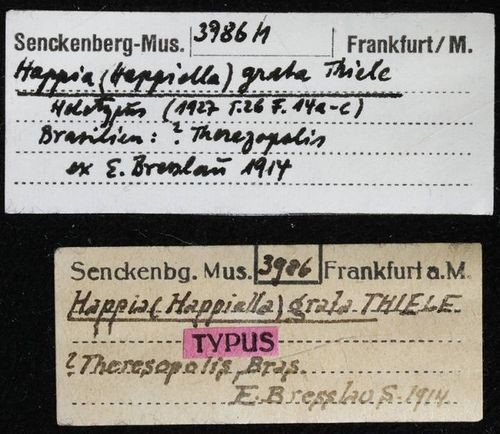 Senckenberg-Mus. 3986 M Frankfurt/M.
Happia (Happiella) grata Thiele
Holotypus (1927 T.26 F. 14a-c)
Brasilien: ? Therezopolis
ex E. Bresslau 1914
Senckenbg. Mus. 3986 Frankfurt a.M.
Happia (Happiella) grata THIELE.
TYPUS
? Theresopolis, Bras.
E. Bresslau S. 1914